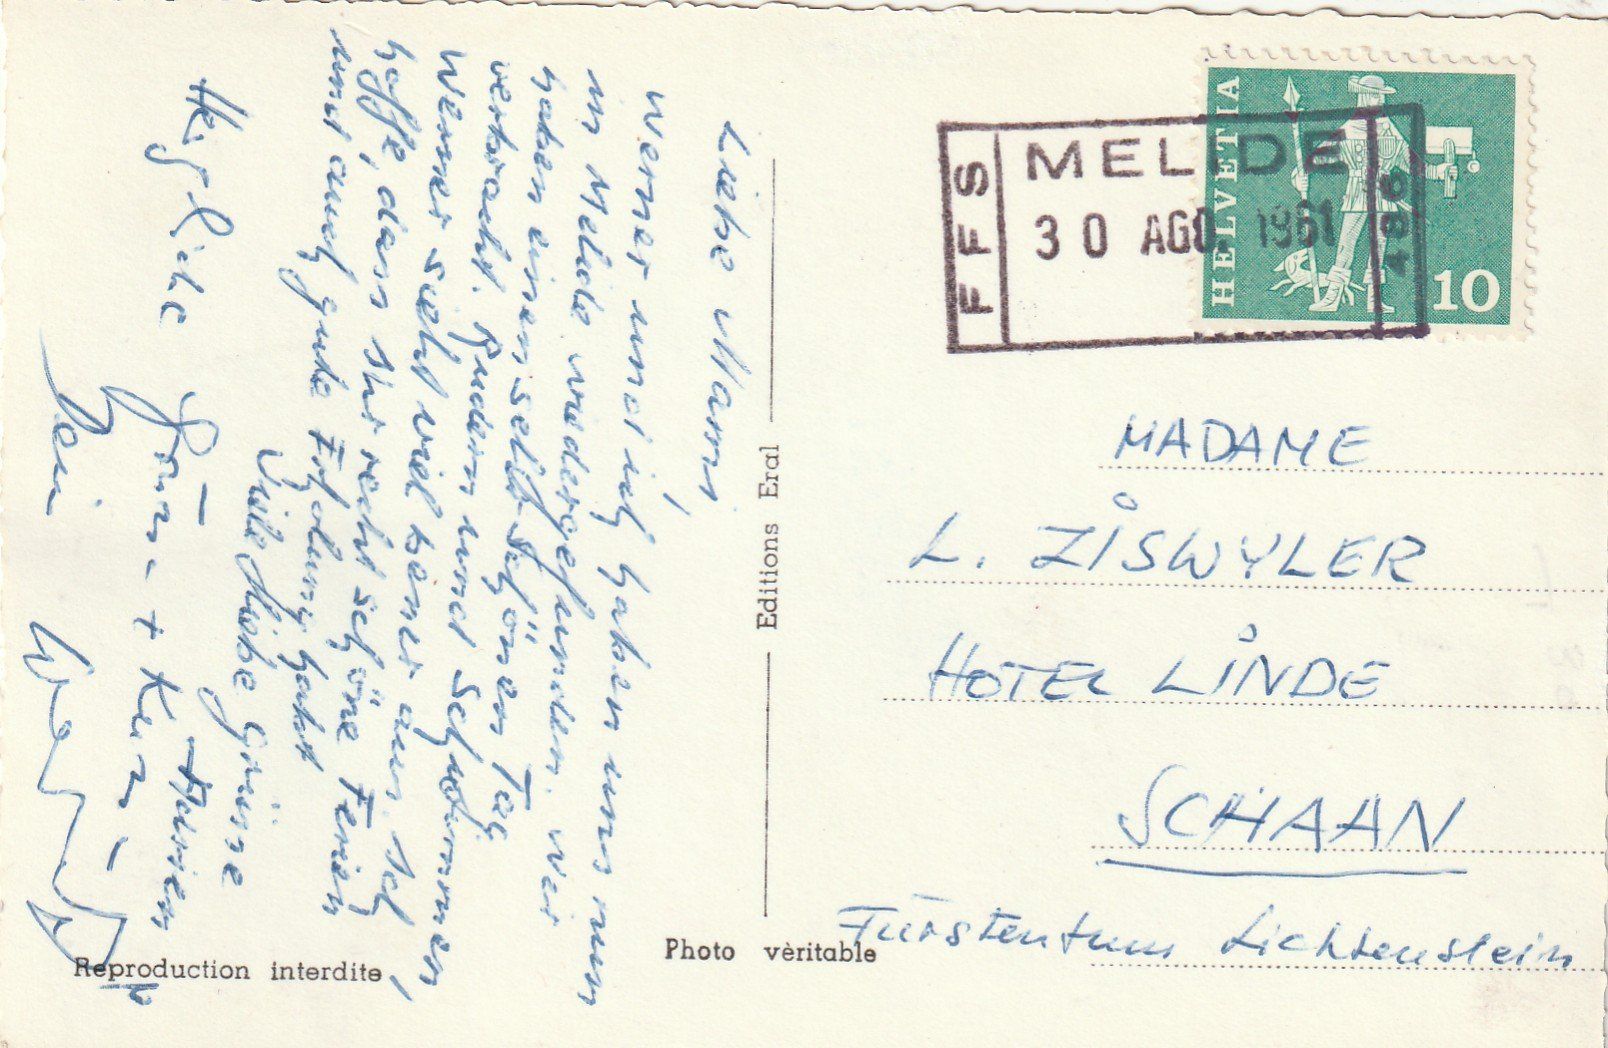 Liebe Mami,
Werner und ich haben uns nun
in Melide wiedergefunden. Wir
haben einen sehr schönen Tag
verbracht. Rudern und Schwimmen
Werner sieht viel besser aus. Ich
hoffe, dass Ihr recht schöne Ferien
und auch gute Erholung habt
Viele liebe Grüsse
Herzliche Grüsse + Küsse
Dein
HELVETIA
10
FFS
MELIDE
30 AGO. 1961
496
MADAME
L. ZISWYLER
HOTEL LINDE
SCHAAN
Fürstentum Lichtenstein
Editions Eral
Photo vèritable
Reproduction interdite